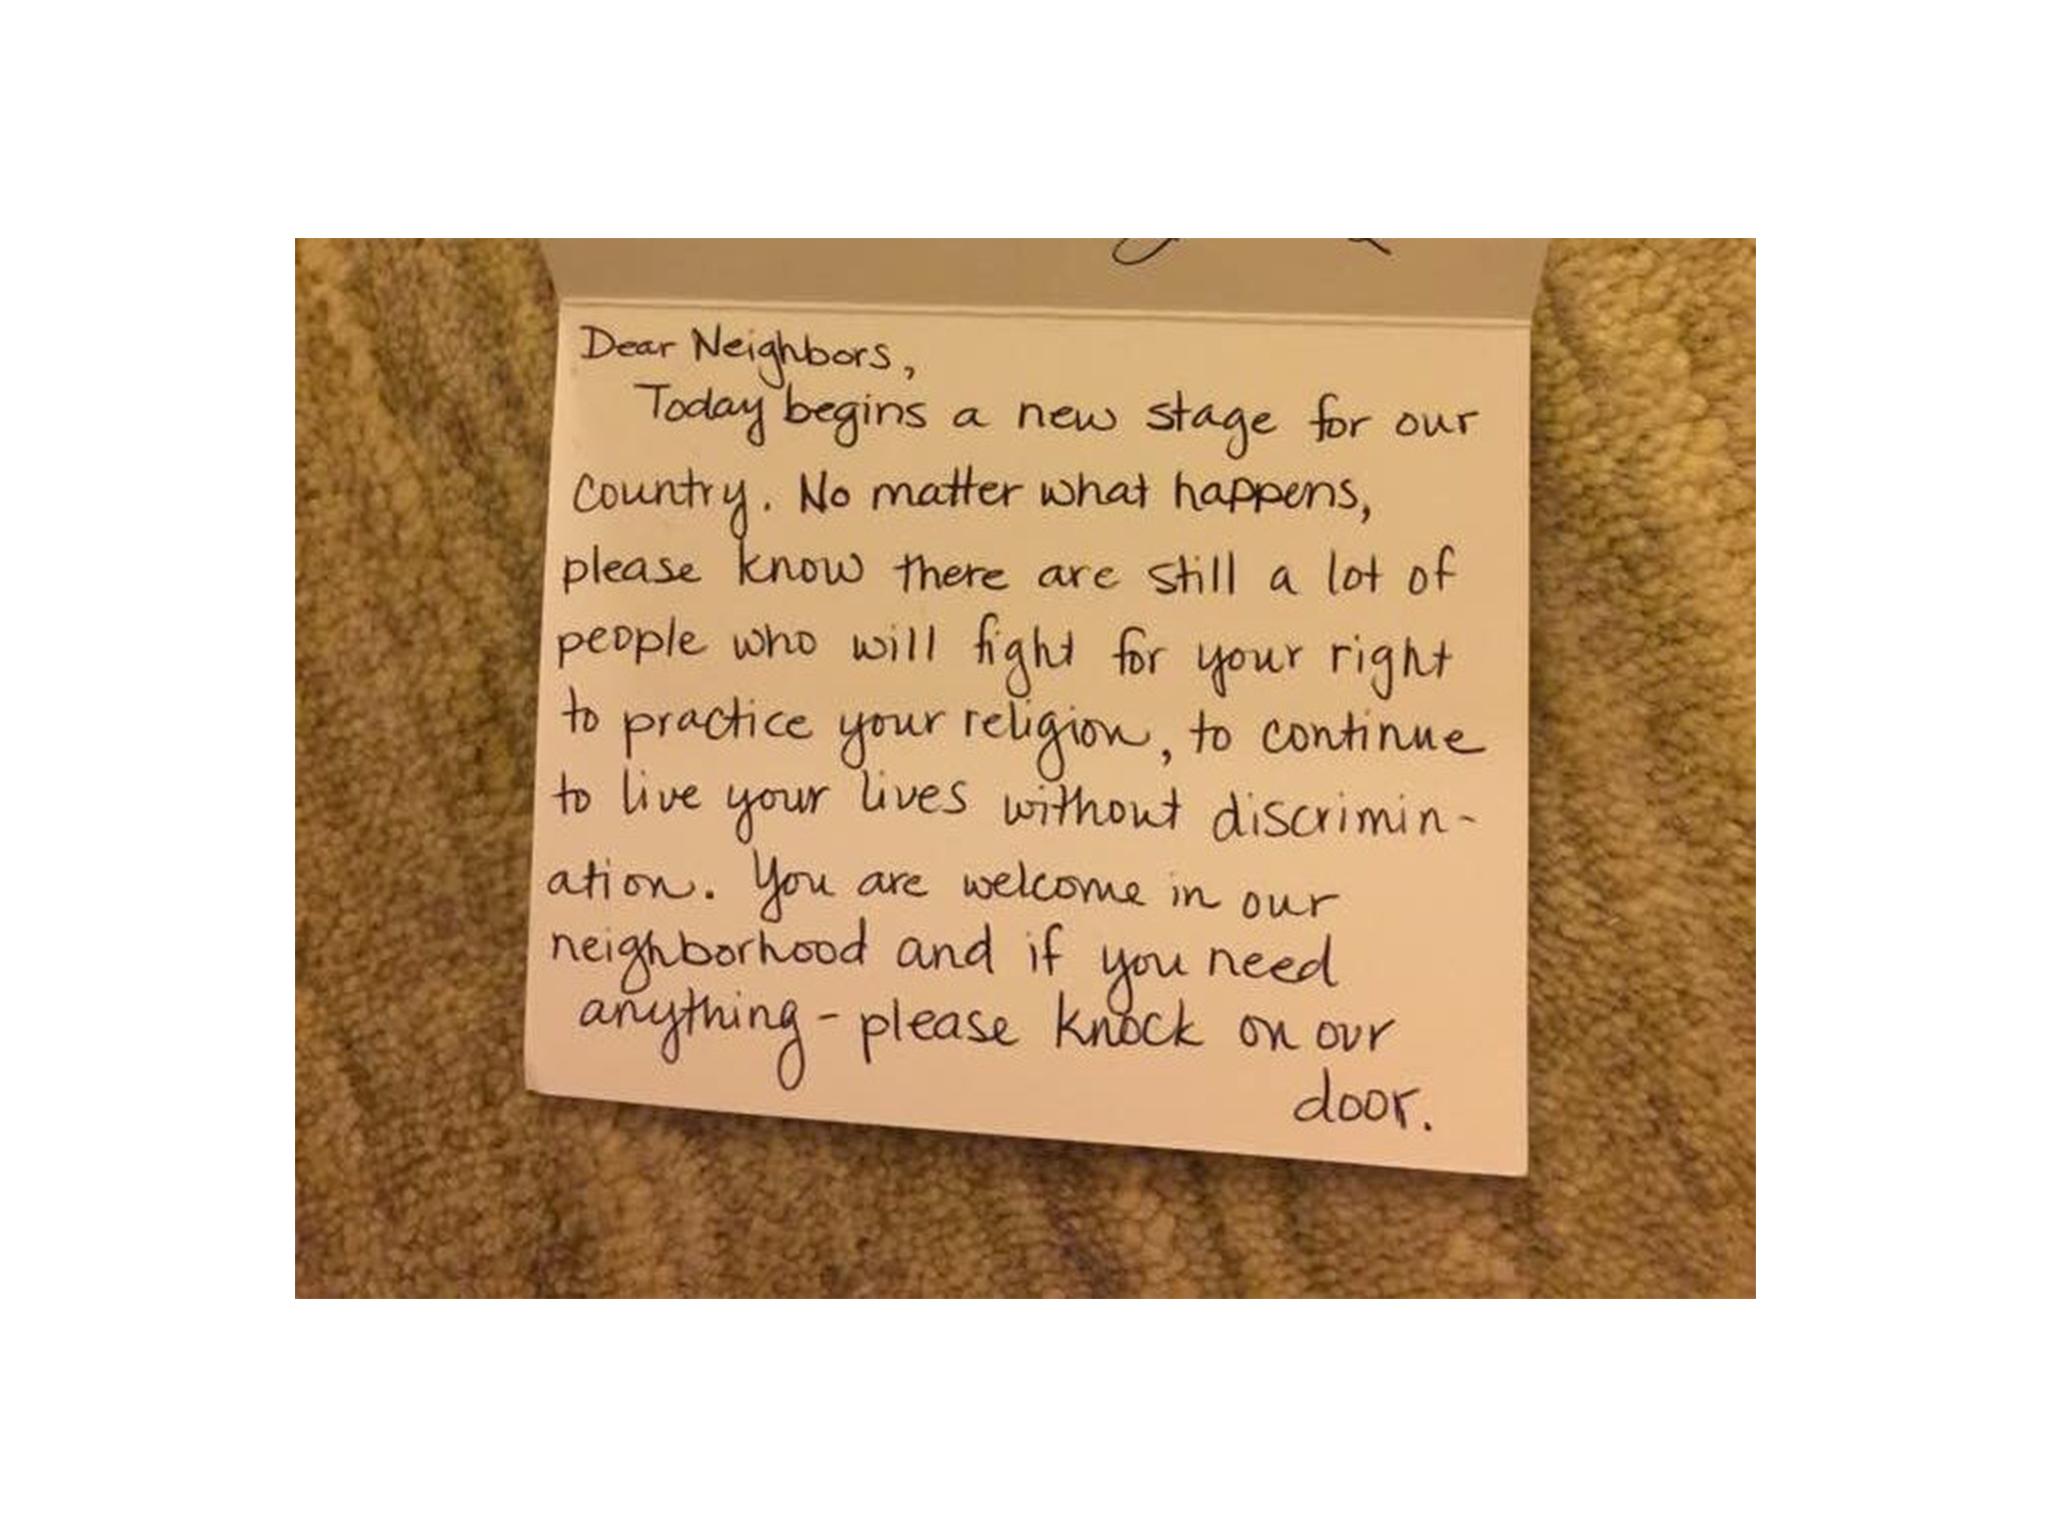 Dear Neighbors,
Today begins a new stage for our
country. No matter what happens,
please know there are still a lot of
people who will fight for your right
to practice your religion, to continue
to live your lives without discrimin-
ation. You are welcome in our
neighborhood and if you need
anything - please knock on our
door.